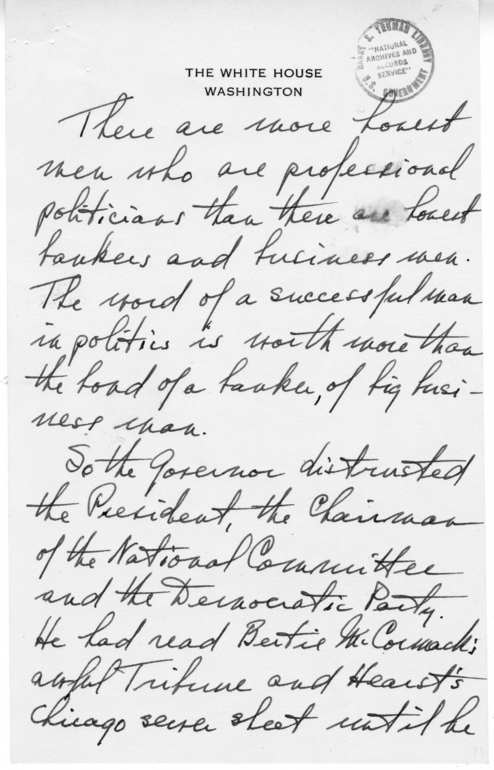 HARRY S. TRUMAN LIBRARY
"NATIONAL
ARCHIVES AND
RECORDS
SERVICE"
U.S. GOVERNMENT
THE WHITE HOUSE
WASHINGTON
There are more honest
men who are professional
politicians than there are honest
bankers and business men.
The word of a successful man
in politics is worth more than
the bond of a banker, of big busi-
ness man.
So the Governor distrusted
the President, the Chairman
of the National Committee
and the Democratic Party.
He had read Bertie McCormack's
awful Tribune and Hearst's
Chicago sewer sheet until he